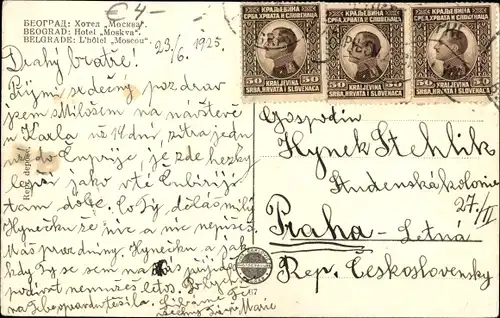 €4-
БЕОГРАД: Хотел „Москва“
BEOGRAD: Hotel „Moskva“.
BELGRADE: L'hôtel „Moscou“.
КРАЉЕВИНА
СРБА, ХРВАТА И СЛОВЕНАЦА
50 50
KRALJEVINA
SRBA, HRVATA I SLOVENACA
КРАЉЕВИНА
СРБА, ХРВАТА И СЛОВЕНАЦА
50 50
KRALJEVINA
SRBA, HRVATA I SLOVENACA
КРАЉЕВИНА
СРБА, ХРВАТА И СЛОВЕНАЦА
50 50
KRALJEVINA
SRBA, HRVATA I SLOVENACA
23/6. 1925.
Drahý bratře!
Přijmi srdečný pozdrav
jsem s Milošem na návštěvě
u Karla na 14 dní, zítra jedu
do Ćuprije, je zde hezky
jako v té
tam dobře. Co Ty děláš milý
Hynečku že nic a nic nepíšeš
Máš prázdniny. Hynečku a jak
Ty se sem na nás
nemůžeš letos.
těšila. Líbáme Tě
Marie
Gospodin
Hynek Stehlik
Studenská kolonie
27/II
Praha - Letná
Rep. Československy